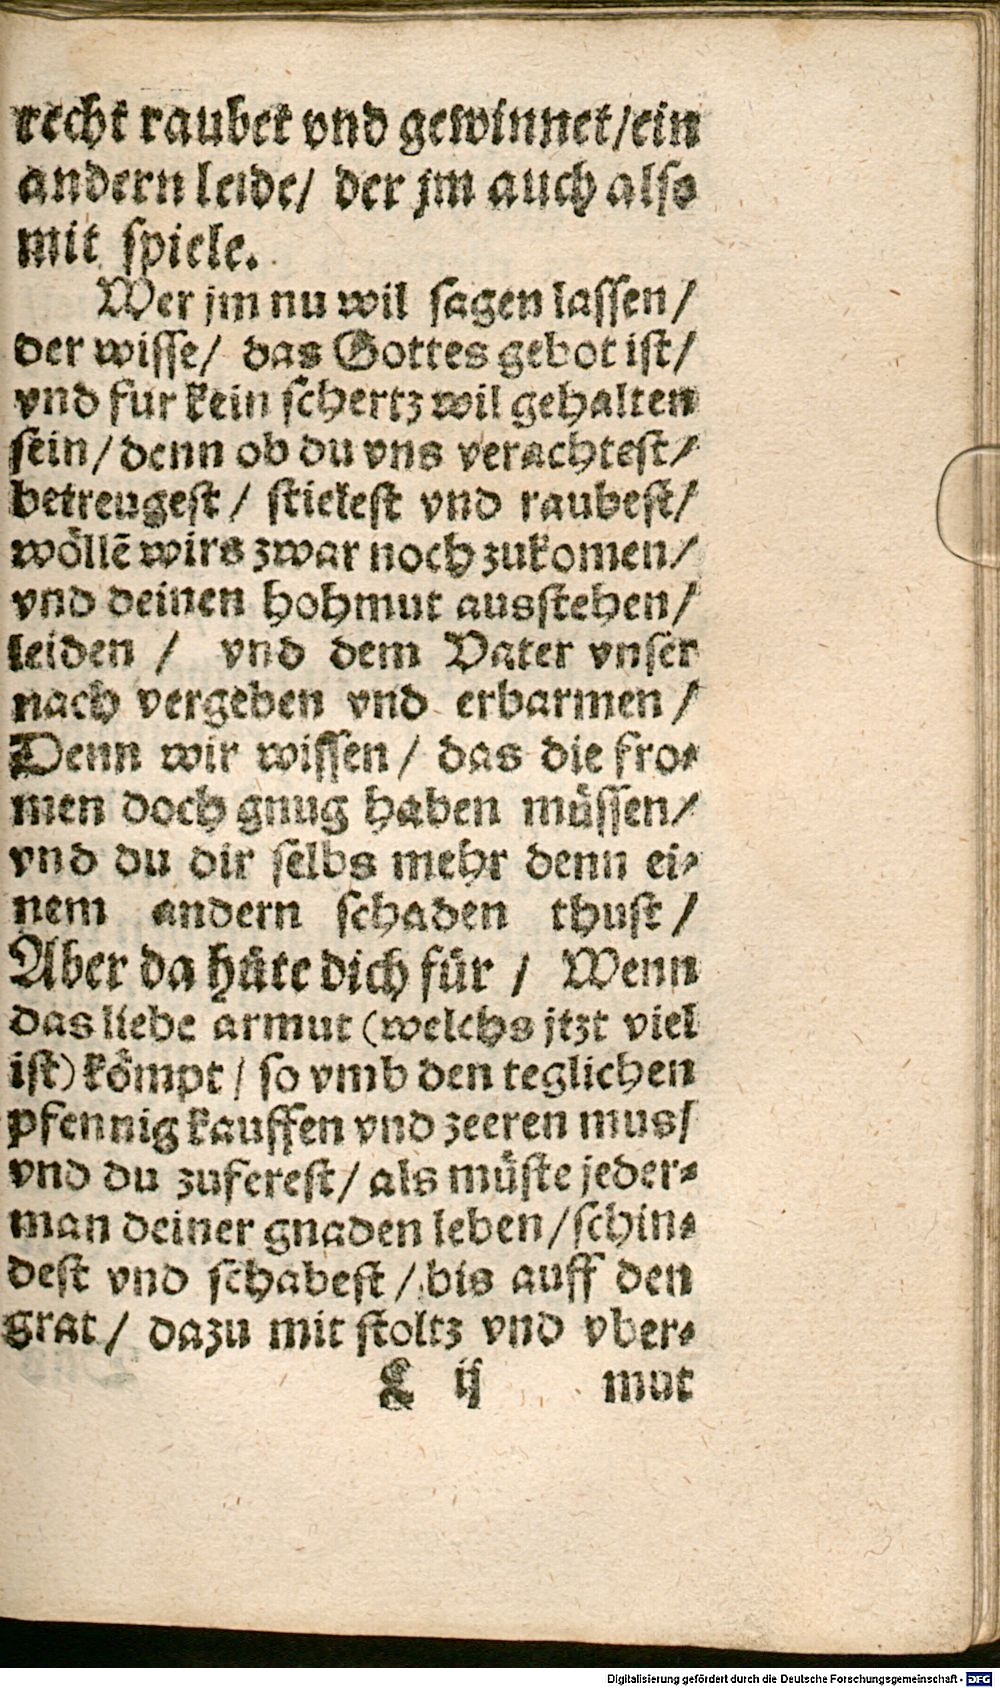 recht raubet vnd gewinnet/ein
andern leide/ der jm auch also
mit spiele.
Wer jm nu wil sagen lassen/
der wisse/ das Gottes gebot ist/
vnd fur kein schertz wil gehalten
sein/denn ob du vns verachtest/
betreugest/ stielest vnd raubest/
wöllē wirs zwar noch zukomen/
vnd deinen hohmut ausstehen/
leiden / vnd dem Vater vnser
nach vergeben vnd erbarmen/
Denn wir wissen/ das die fro-
men doch gnug haben müssen/
vnd du dir selbs mehr denn ei-
nem andern schaden thust/
Aber da hüte dich für/ Wenn
das liebe armut (welchs jtzt viel
ist) kömpt/ so vmb den teglichen
pfennig kauffen vnd zeeren mus/
vnd du zuferest/ als müste jeder-
man deiner gnaden leben/schin-
dest vnd schabest/ bis auff den
grat/ dazu mit stoltz vnd vber-
L ij mut
Digitalisierung gefördert durch die Deutsche Forschungsgemeinschaft - DFG